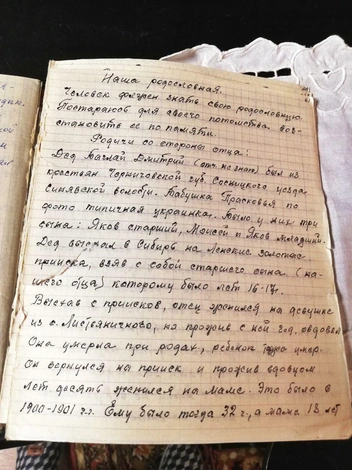 Наша родословная.
Человек должен знать свою родословную.
Постараюсь для своего потомства вос-
становить её по памяти.
Родичи со стороны отца:
Дед Баглай Дмитрий (отч. не знаю) был из
крестьян Черниговской губ. Сосницкого уезда
Синявской волости. Бабушка Прасковья по
фото типичная украинка. Было у них три
сына: Яков старший, Моисей и Яков младший.
Дед выехал в Сибирь на Ленские золотые
прииска, взяв с собой старшего сына (на-
шего отца) которому было лет 16-17.
Выехав с приисков, отец женился на девушке
из с. Лиственичново, но прожив с ней год, овдовел
Она умерла при родах, ребенок умер.
Он вернулся на прииск и прожив вдовцом
лет десять женился на маме. Это было в
1900-1901 г.г. Ему было тогда 32 г., а маме 18 лет